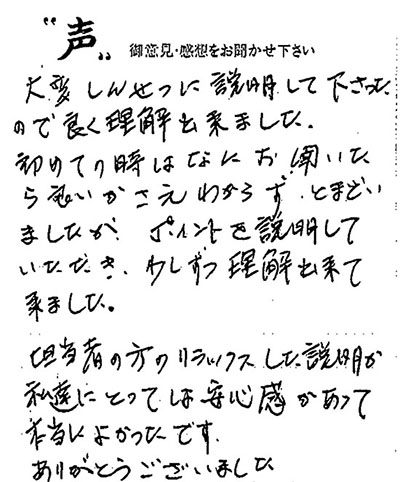 "声"
御意見・感想をお聞かせ下さい
大変しんせつに説明して下さった
ので良く理解出来ました.
初めての時はなにお聞いた
ら良いかさえわからず、とまどい
ましたが、ポイントを説明して
いただき、少しずつ理解出来て
来ました。
担当者の方のリラックスした説明が
私達にとっては安心感があって
本当によかったです.
ありがとうございました